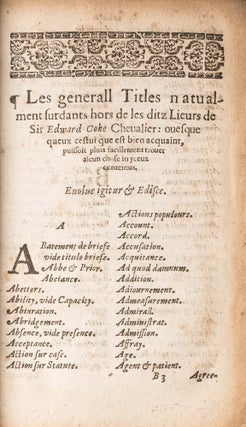 ¶ Les generall Titles natual-
ment surdants hors de les ditz Lieurs de
Sir Edward Coke Chevalier: ouesque
queux cestui que est bien acquaint,
puissoit pluis facillement trouer
alcun chose in yceux
conteinus.
Euolue igitur & Edisce.
A
ABatement de briefe
vide titulo briefe.
Abbe & Prior.
Abeiance.
Abetters.
Ability, vide Capacity.
Abiuration.
Abridgement.
Absence, vide presence.
Acceptance.
Action sur case.
Action sur Statute.
Actions populours.
Account.
Accord.
Accusation.
Acquitance.
Ad quod damnum.
Addition.
Adiournement.
Admeasurement.
Admirall.
Administrat.
Admission.
Affray.
Age.
Agent & patient.
B 3 Agree-